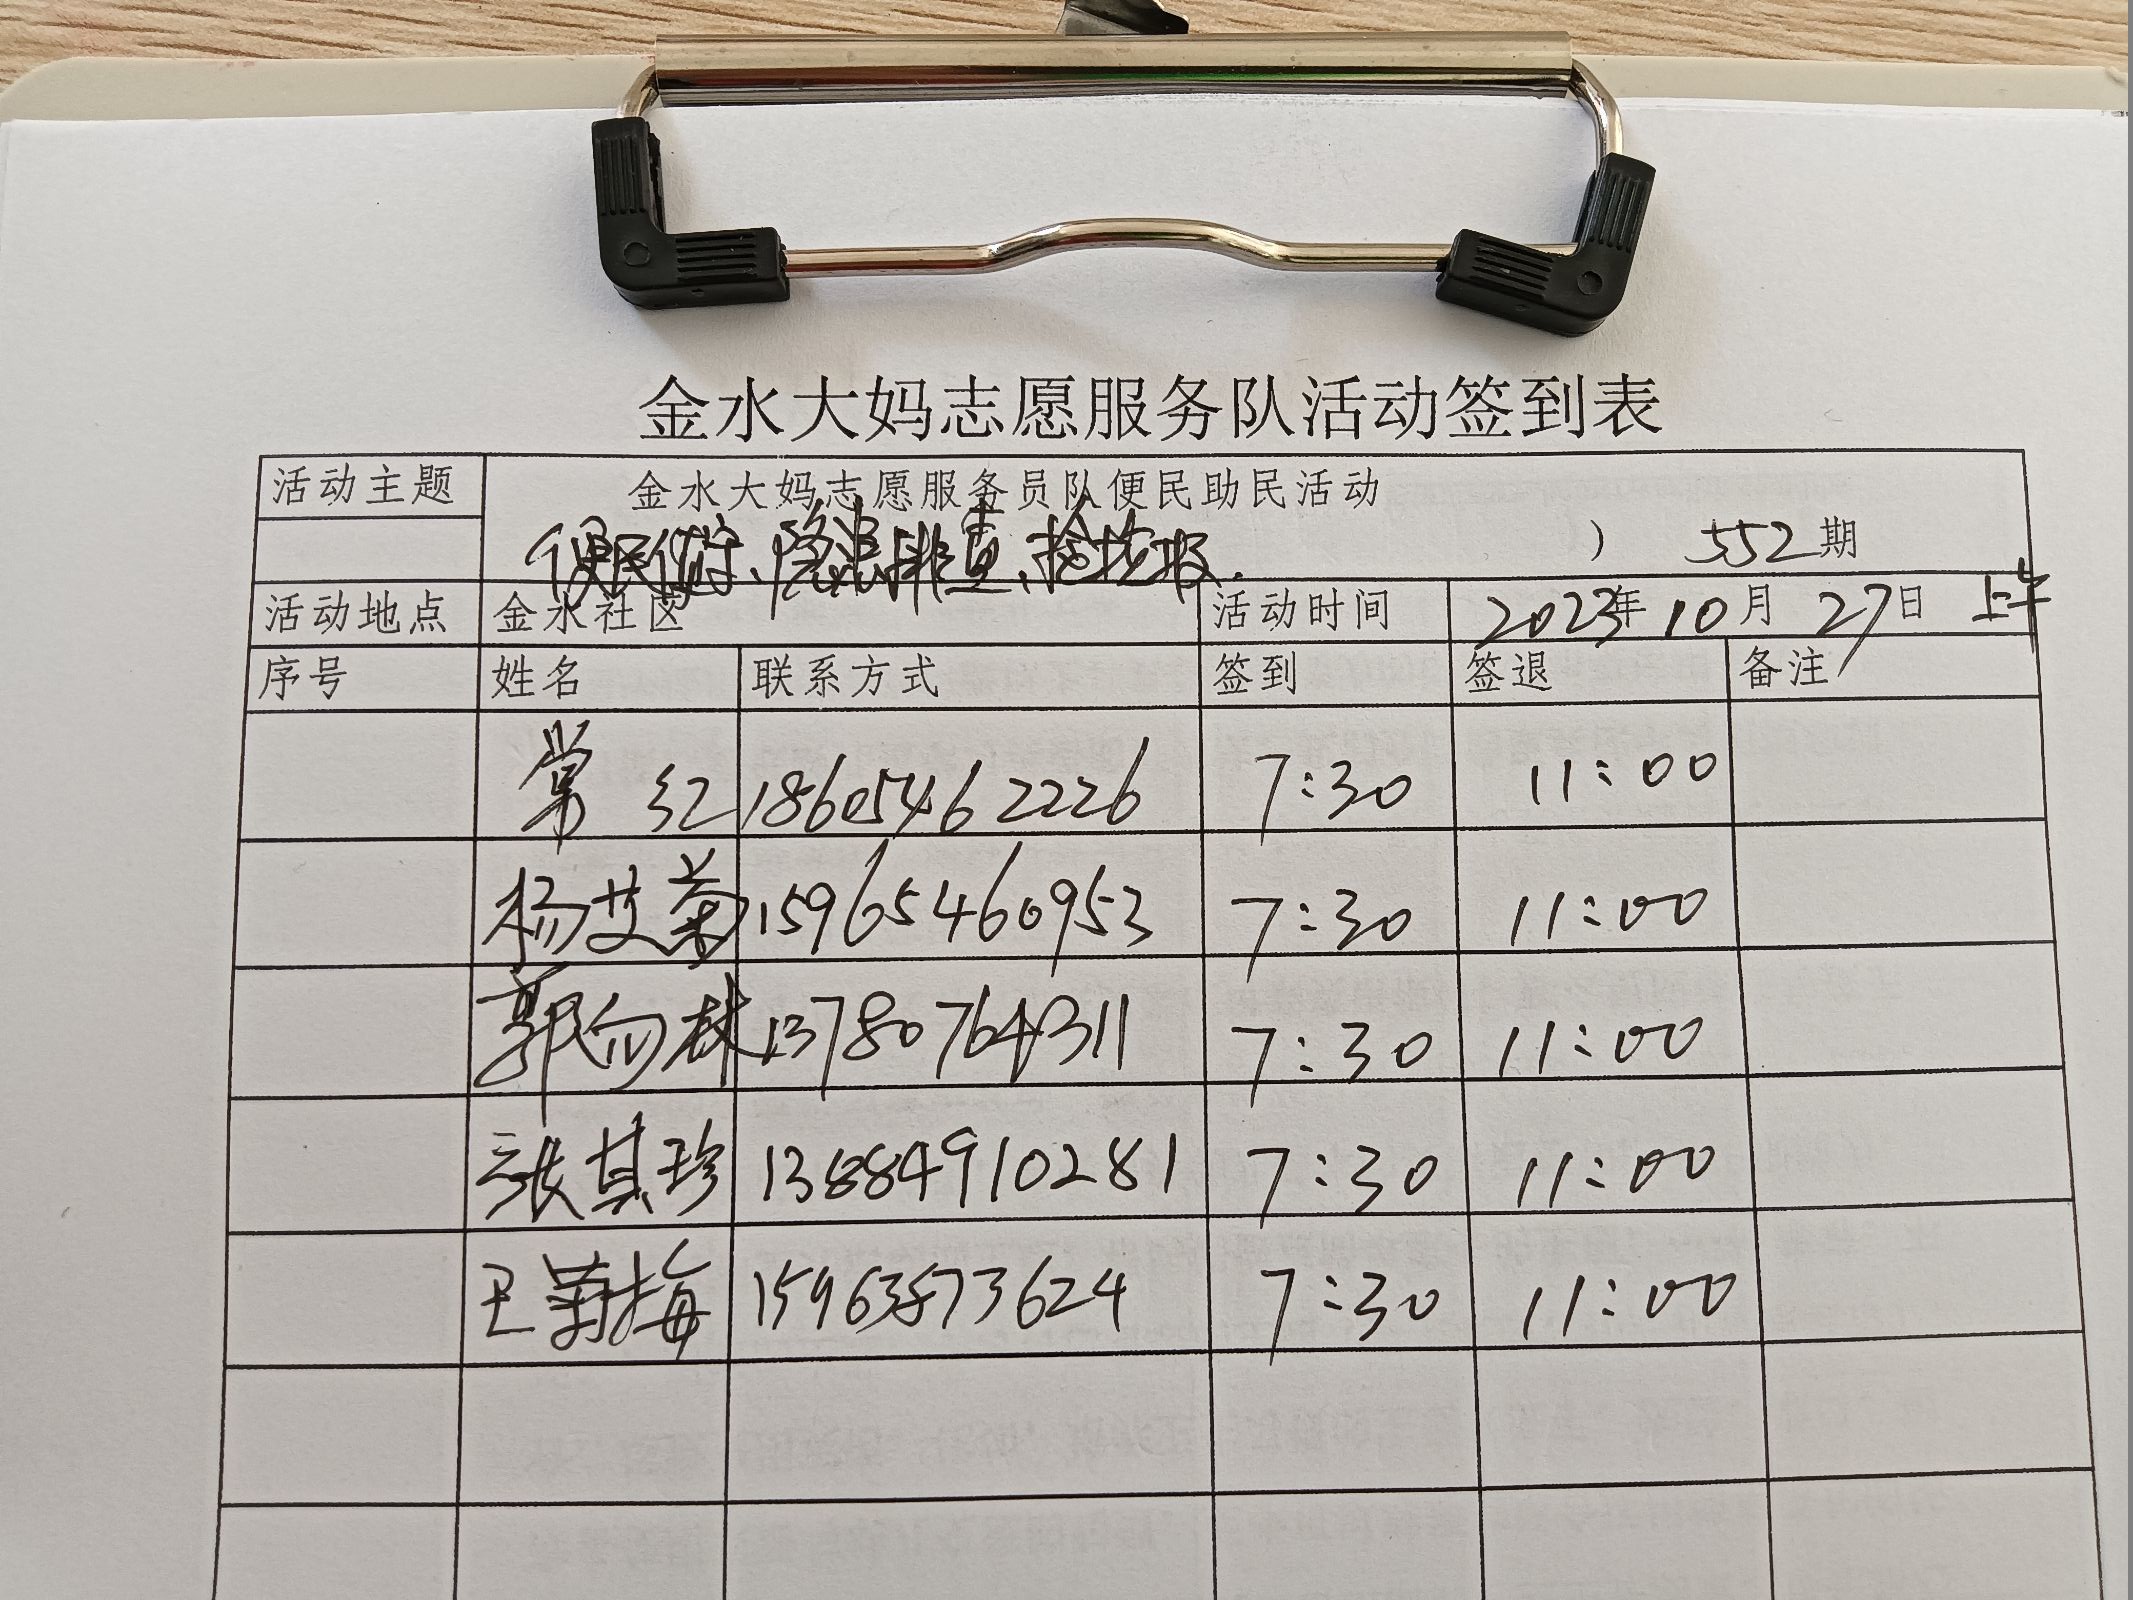 金水大妈志愿服务队活动签到表
活动主题 金水大妈志愿服务员队便民助民活动
便民 、隐患排查、捡垃圾. ） 552期
活动地点 金水社区 活动时间 2023年10月27日 上午
序号 姓名 联系方式 签到 签退 备注
常红 18605462226 7:30 11:00
杨艾菊 15965460953 7:30 11:00
郭向林 13780764311 7:30 11:00
张其珍 13884910281 7:30 11:00
王菊梅 15963573624 7:30 11:00